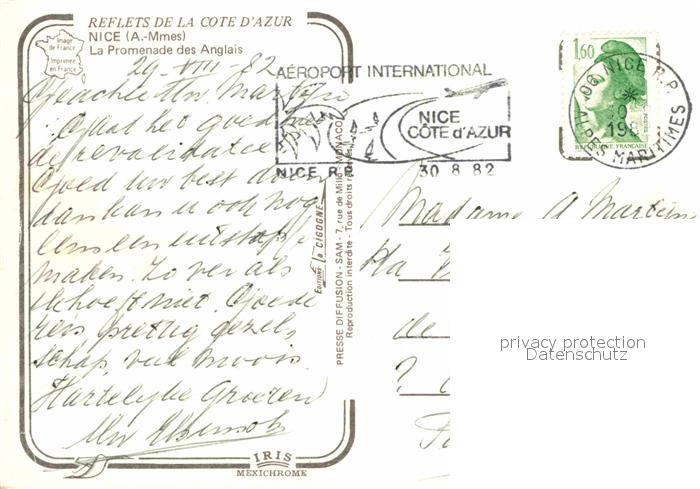 REFLETS DE LA COTE D'AZUR
NICE (A.-Mmes)
La Promenade des Anglais
Image
de France
Imprimée
en France
29-VIII-82
Geachte Mn. Martens
Gaat het goed
de revalidatie
Goed uw best doen
dan kan u ook nog
eens een uitstap
maken. Zo ver als
behoeft niet. Goede
reis prettig gezel
schap, veel moois.
Hartelijke Groeten
AÉROPORT INTERNATIONAL
NICE
CÔTE d'AZUR
NICE R.P.
30 8 82
1,60
RÉPUBLIQUE FRANÇAISE
06 NICE R.P.
ALPES MARITIMES
Editions la CIGOGNE
PRESSE DIFFUSION - SAM - 7, rue de Millo - MONACO
Reproduction interdite - Tous droits
Madame A Martens
de
privacy protection
Datenschutz
IRIS
MEXICHROME